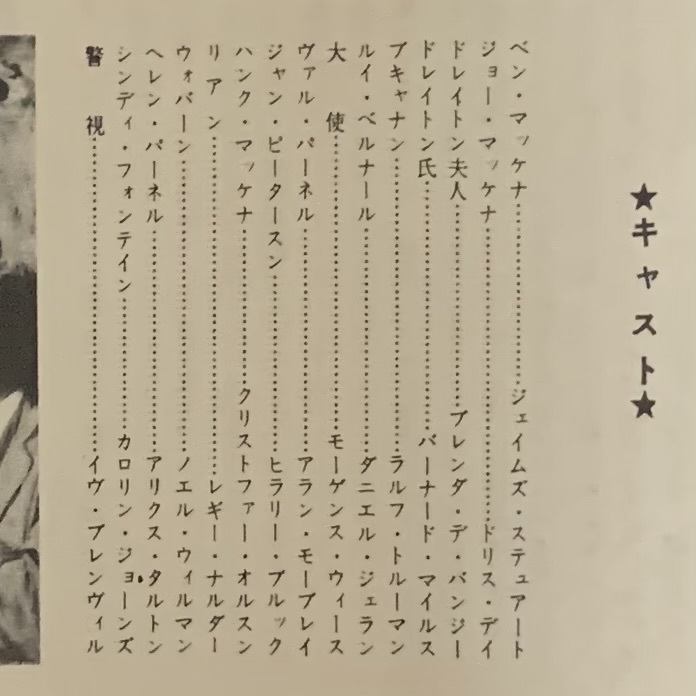 ★キャスト★
ベン・マッケナ……………ジェイムズ・ステュアート
ジョー・マッケナ……………ドリス・デイ
ドレイトン夫人……………ブレンダ・デ・バンジー
ドレイトン氏……………バーナード・マイルス
ブキャナン……………ラルフ・トルーマン
ルイ・ベルナール……………ダニエル・ジェラン
大使……………モーゲンス・ウィース
ヴァル・パーネル……………アラン・モーブレイ
ジャン・ピータースン……………ヒラリー・ブルック
ハンク・マッケナ……………クリストファー・オルスン
リアン……………レギー・ナルダー
ウォバーン……………ノエル・ウィルマン
ヘレン・パーネル……………アリクス・タルトン
シンディ・フォンテイン……………カロリン・ジョーンズ
警視……………イヴ・ブレンヴィル